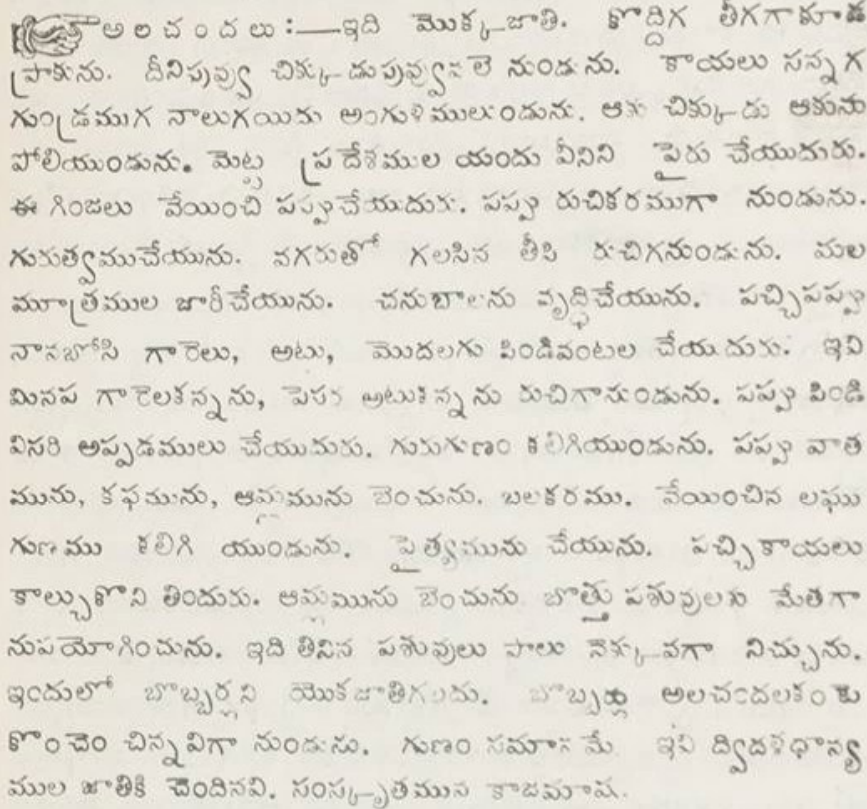 అలచందలు :— ఇది మొక్కజాతి. కొద్దిగ తీగగాకూడ
ప్రాకును. దీనిపువ్వు చిక్కుడుపువ్వువలె నుండును. కాయలు సన్నగ
గుండ్రముగ నాలుగయిదు అంగుళములుండును. ఆకు చిక్కుడు ఆకును
పోలియుండును. మెట్ట ప్రదేశముల యందు వీనిని పైరు చేయుదురు.
ఈ గింజలు వేయించి పప్పుచేయుదురు. పప్పు రుచికరముగా నుండును.
గురుత్వముచేయును. వగరుతో గలసిన తీపి రుచిగనుండును. మల
మూత్రముల జారీచేయును. చనుబాలను వృద్ధిచేయును. పచ్చిపప్పు
నానబోసి గారెలు, అటు, మొదలగు పిండివంటల చేయుదురు. ఇవి
మినప గారెలకన్నను, పెసర అటుకన్నను రుచిగానుండును. పప్పు పిండి
విసరి అప్పడములు చేయుదురు. గురుగుణం కలిగియుండును. పప్పు వాత
మును, కఫమును, ఆమ్లమును బెంచును. బలకరము. వేయించిన లఘు
గుణము కలిగి యుండును. పైత్యమును చేయును. పచ్చికాయలు
కాల్చుకొని తిందురు. ఆమ్లమును బెంచును. బొత్తు పశువులకు మేతగా
నుపయోగించును. ఇది తినిన పశువులు పాలు నెక్కువగా నిచ్చును.
ఇందులో బొబ్బర్లని యొకజాతిగలదు. బొబ్బర్లు అలచందలకంటు
కొంచెం చిన్నవిగా నుండును. గుణం సమానమే. ఇవి ద్విదళధాన్య
ముల జాతికి చెందినవి. సంస్కృతమున రాజమాష.